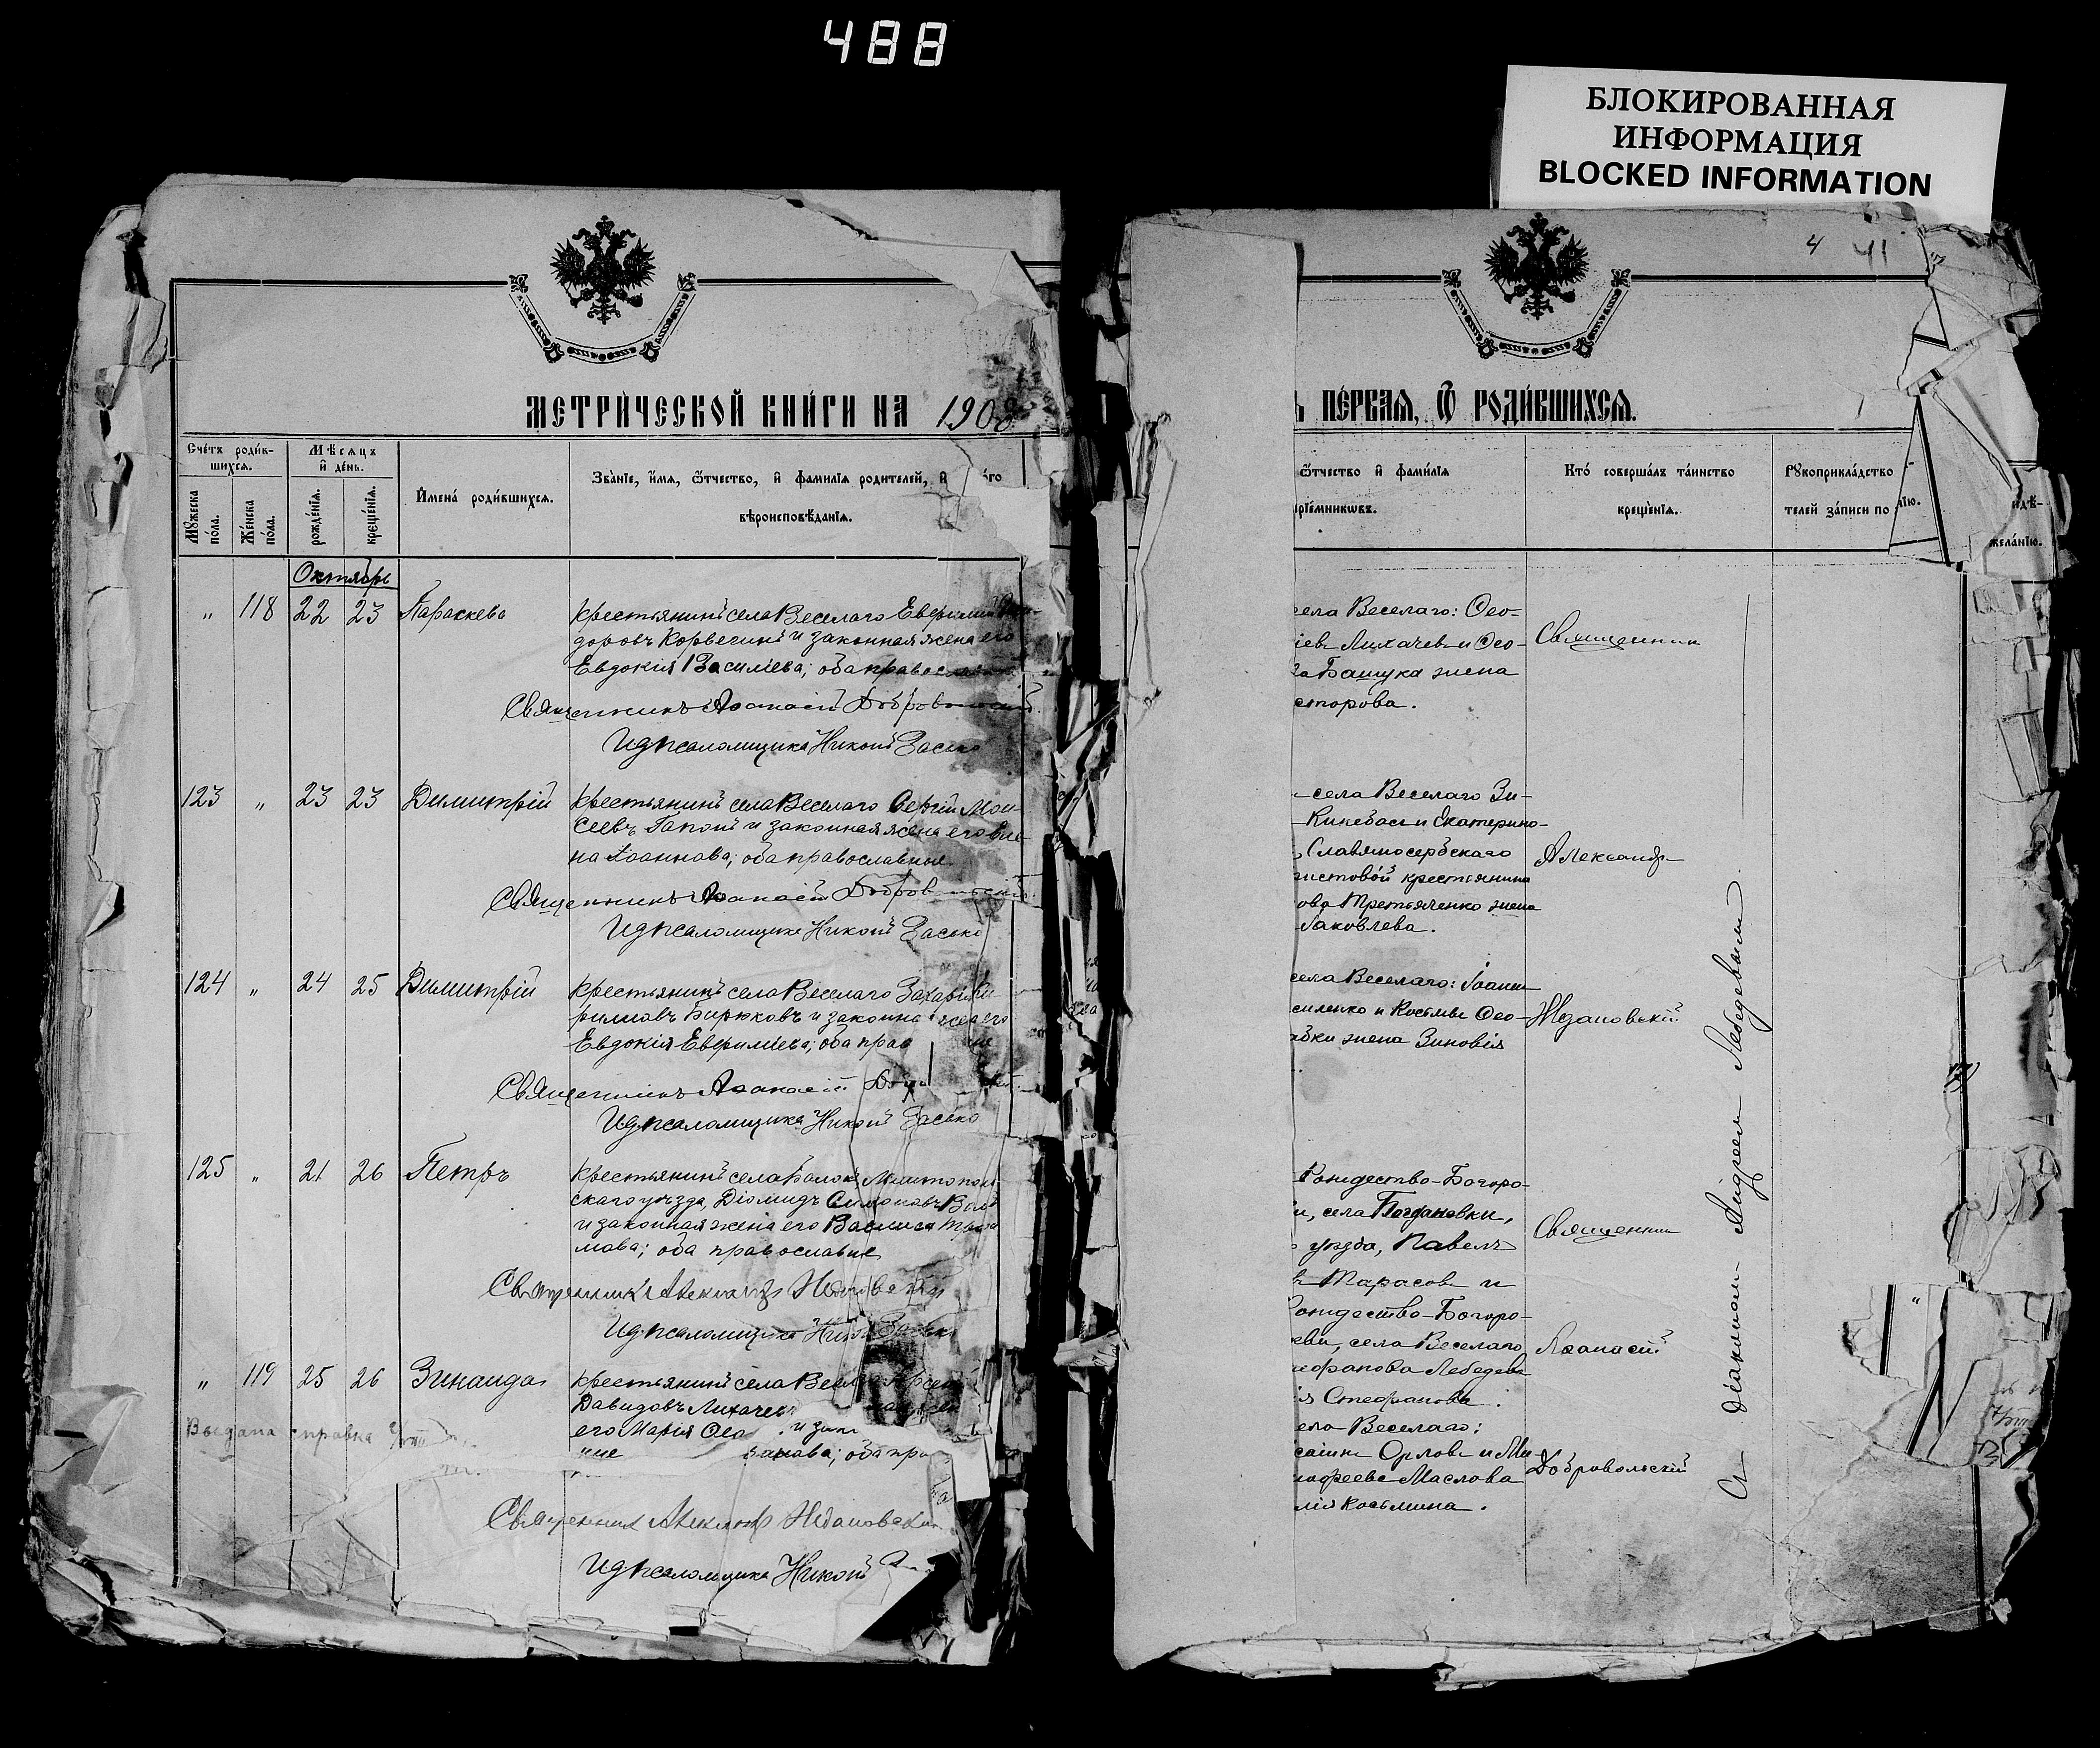 488
БЛОКИРОВАННАЯ
ИНФОРМАЦИЯ
BLOCKED INFORMATION
МЕТРИ́ЧЕСКОЙ КНИ́ГИ НА 1908
Сче́тъ роди́в-
шихся.
Мѣсяцъ
и҆ де́нь.
Мꙋжеска
по́ла.
Же́нска
по́ла.
рожде́нїѧ.
креще́нїѧ.
И҆мена̀ роди́вшихсѧ.
Зва́нїе, и҆́мѧ, ѻ҆́тчество, и҆ фами́лїѧ роди́телей, и҆
вѣроисповѣ́данїѧ.
Октябрь
" 118 22 23 Параскева
крестьянинъ села Веселаго Евфимій Ѳео-
доровъ Корвегинъ и законная жена его
Евдокія Василіева; оба православные
Священникъ Аѳанасій Добровольскій
И д псаломщика Никонъ Засько
123 " 23 23 Димитрій
крестьянинъ села Веселаго Сергій Мои-
сеевъ Гапонъ и законная жена его Еле-
на Іоаннова; оба православные.
Священникъ Аѳанасій Добровольскій
И д псаломщика Никонъ Засько
124 " 24 25 Димитрій
крестьянинъ села Веселаго
Бирюковъ и законна жена его
Евдокія Евфиміева; оба прав
Священникъ Аѳанасій
И д псаломщика Никонъ Засько
125 " 21 26 Петръ
крестьянинъ села Балокъ Мелитополь-
скаго уѣзда, Діомидъ Симоновъ
и законная жена его Василиса
мова; оба православные
Священникъ Александръ Ждановскій
И д псаломщика Никонъ Засько
" 119 25 26 Зинаида
крестьянинъ села Весел
Давидовъ Лихачевъ
его Марія Ѳео и зак
ные ванова; оба пра
Выдана справка
Священникъ Александръ Ждановскій
И д псаломщика Никонъ
4 41
ПЕ́РВАѦ, Ѿ РОДИ́ВШИХСѦ.
ѻ҆́тчество и҆ фами́лїѧ
прїе́мникѡвъ.
Кто̀ соверша́лъ та́инство
креще́нїѧ.
Рꙋкоприкла́дство
телей за́писи по
жела́нїю.
села Веселаго: Ѳео-
іевъ Лихачевъ и Ѳео-
ва Башука жена
сторова.
Священник
села Веселаго Зи-
Кинебасъ и Екатерино-
Славяносербскаго
истовой крестьянина
ова Третьяченко жена
Яковлева.
Александр
села Веселаго: Іоанн
силенко и Косьмы Ѳео-
жена Зиновія
Ждановскій
Рождество-Богоро-
и, села Богдановки,
уѣзда, Павелъ
Тарасовъ и
Рождество-Богоро-
кви, села Веселаго
Стефанова Лебедева
Стефанова.
Священник
Аѳанасій
села Веселаго:
Орловъ и Ма-
ндреева Маслова
Косьмина.
Добровольскій
Съ діакономъ Андреемъ Лебедевымъ